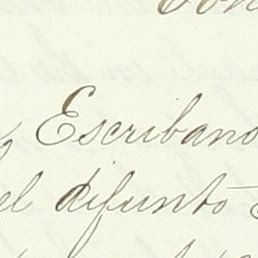 Escribano
el difunto